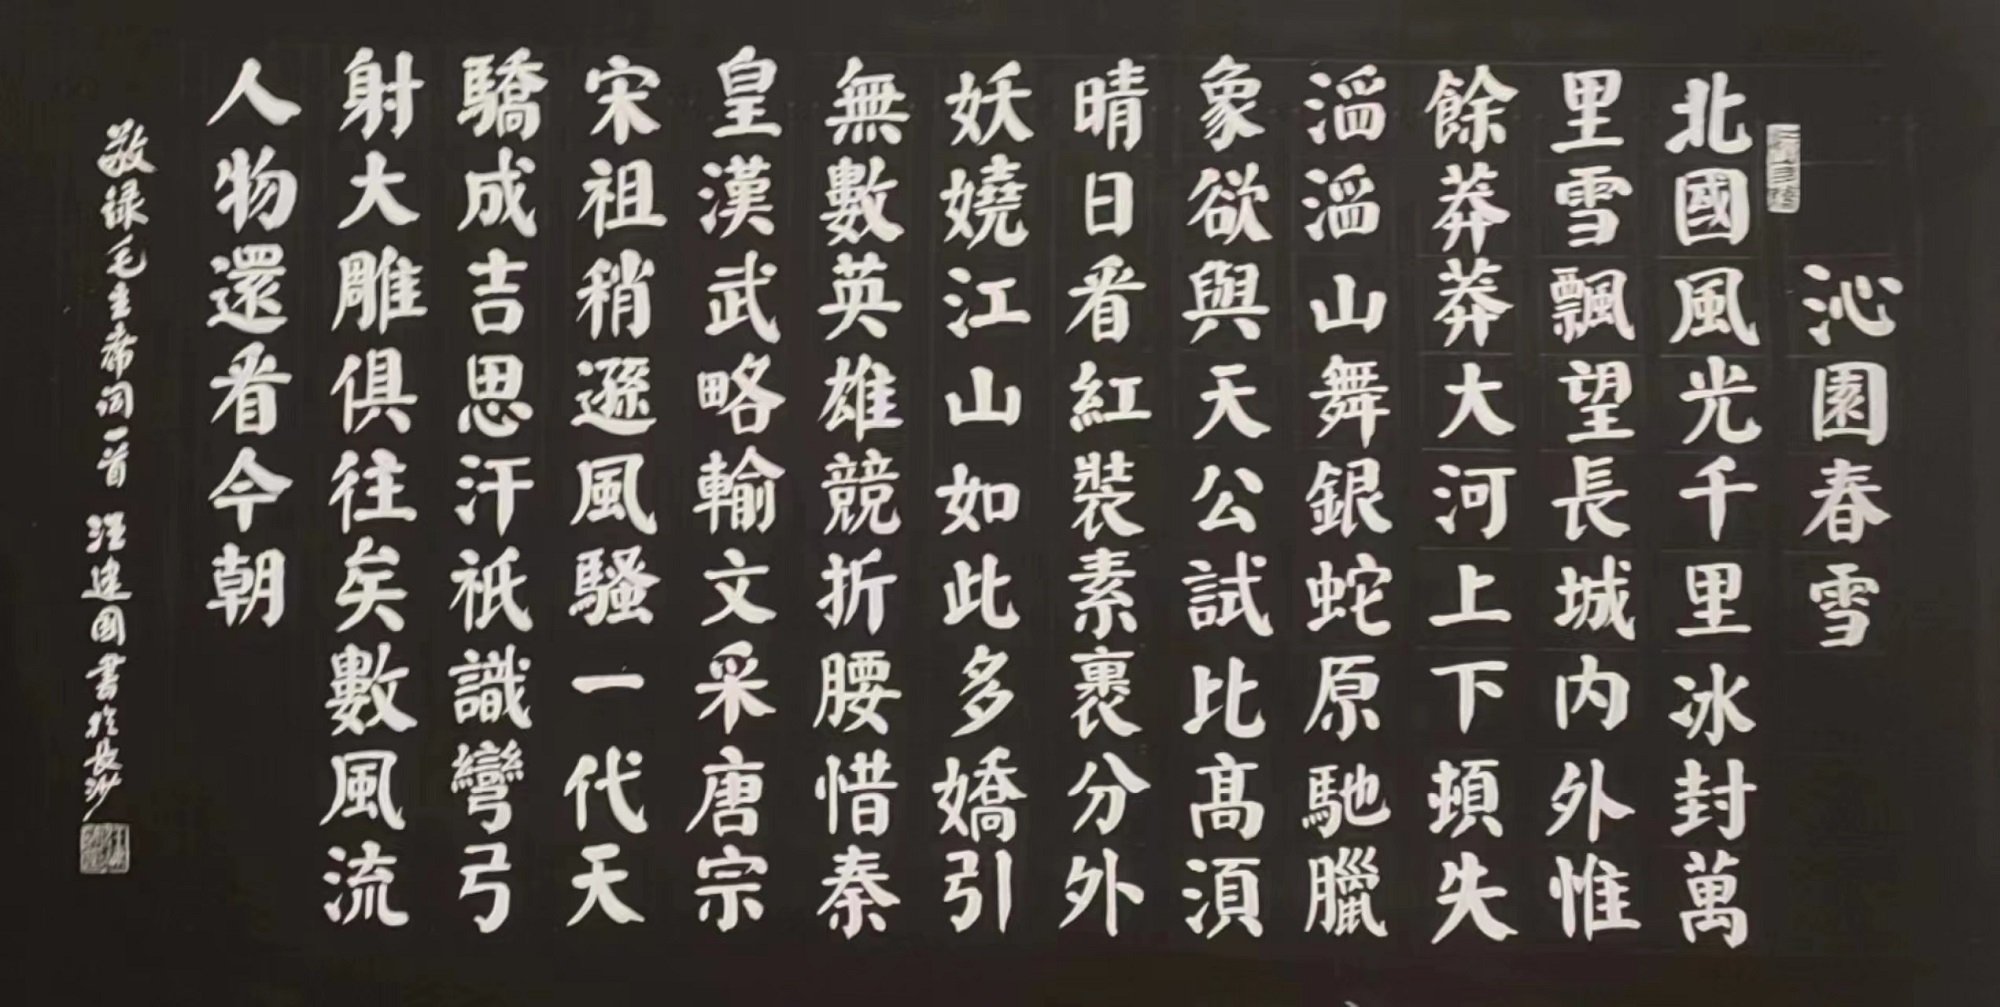 沁園春雪
北國風光千里冰封萬
里雪飄望長城内外惟
餘莽莽大河上下頓失
滔滔山舞銀蛇原馳臘
象欲與天公試比高須
晴日看紅裝素裹分外
妖嬈江山如此多嬌引
無數英雄競折腰惜秦
皇漢武略輸文采唐宗
宋祖稍遜風騷一代天
驕成吉思汗祇識彎弓
射大雕俱往矣數風流
人物還看今朝
敬録毛主席词一首 汪建國書於長沙